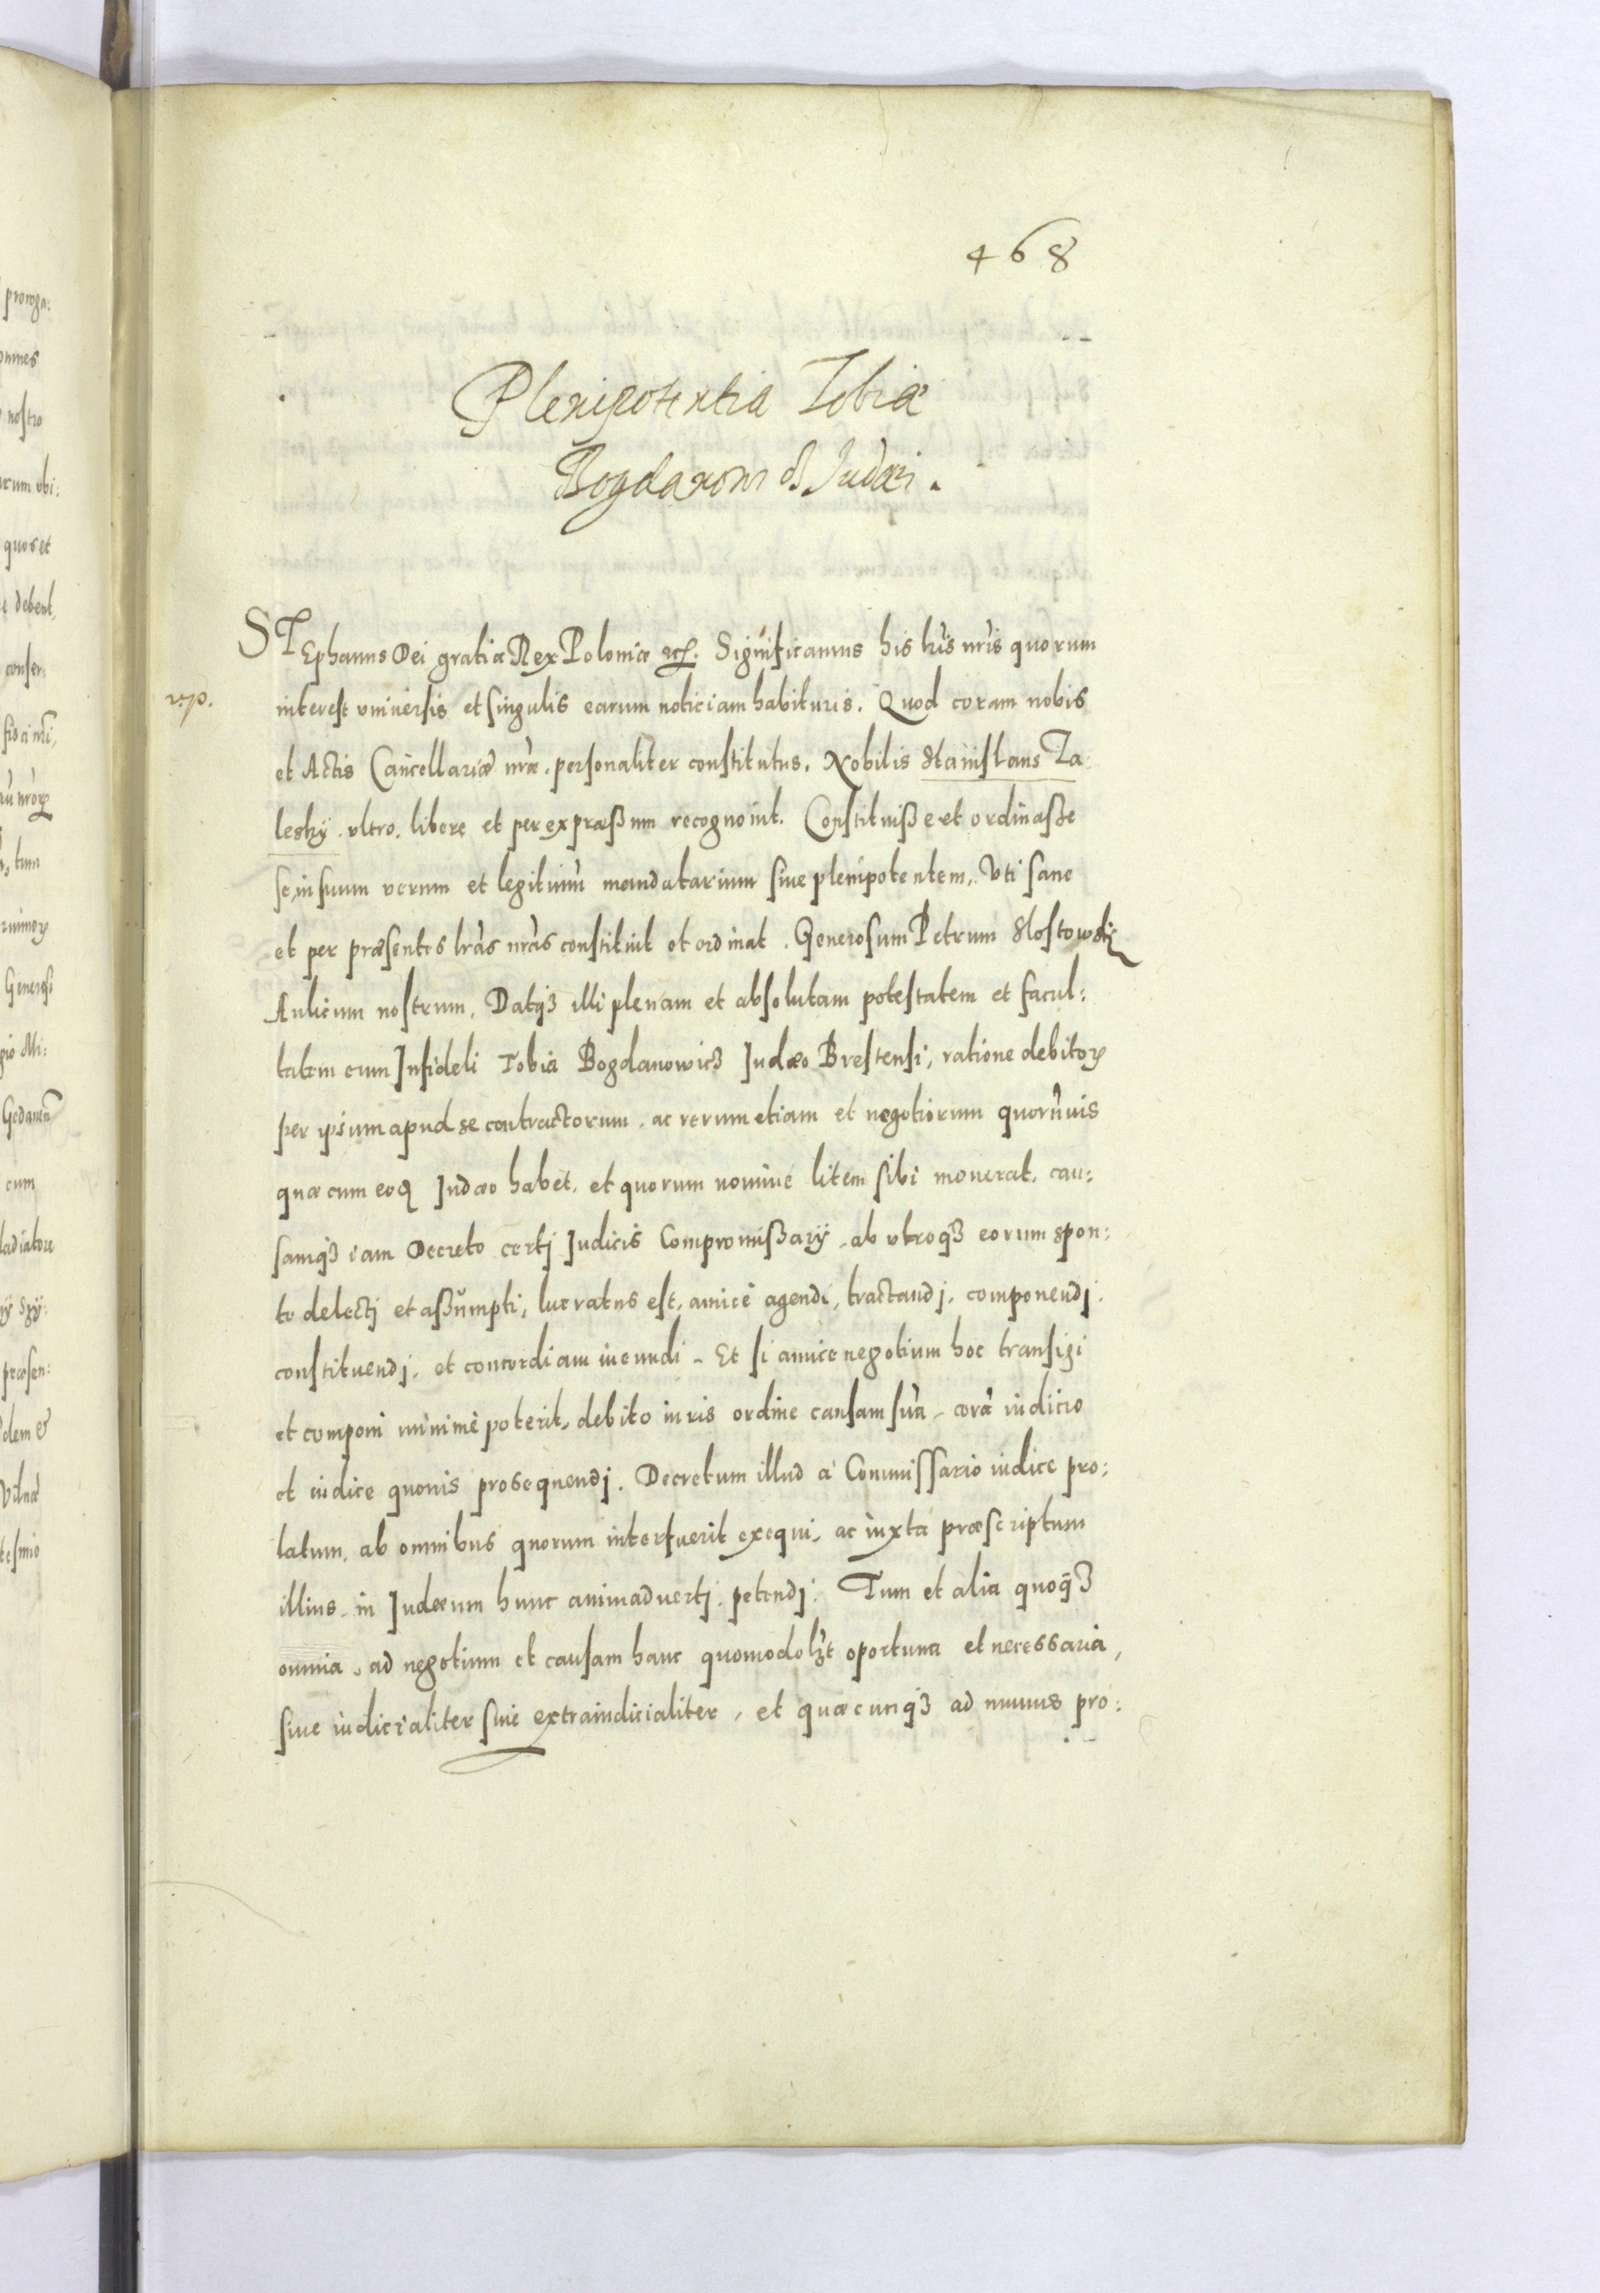 468
Plenipotentia Tobiæ
Bogdanow Judæi.
STEphanus Dei gratia Rex Poloniæ etc. Significamus his lr̃is nr̃is quorum
interest vniuersis et singulis earum noticiam habituris. Quod coram nobis
et Actis Cancellariæ nr̃æ. personaliter constitutus. Nobilis Stanislaus Za
lesky. vltro. libere et per expræßum recognouit. Constituiße et ordinaße
se, in suum verum et legitimũ mandatarium siue plenipotentem, Vti sane
et per præsentes lr̃as nr̃as constituit et ordinat. Generosum Petrum Slostowski
Aulicum nostrum. Datqз illi plenam et absolutam potestatem et facul:
tatem cum Infideli Tobia Bogdanowicз Judæo Brestensi, ratione debitoꝝ
per ipsum apud se contractorum. ac rerum etiam et negotiorum quorũuis
quæ cum eoꝗ Judæo habet, et quorum nomine litem sibi mouerat, cau:
samqз iam Decreto certj Judicis Compromißarÿ ab vtroqз eorum spon:
te delectj et aßumpti, lucratus est, amicè agendi, tractandj, componendj.
constituendj, et concordiam ineundi. Et si amice negotium hoc transigi
et componi minimè poterit, debito iuris ordine causam suã corã iudicio
et iudice quouis prosequendj. Decretum illud à Commissario iudice pro:
latum, ab omnibus quorum interfuerit exequi, ac iuxta præscriptum
illius in Judæum hunc animaduertj petendj. Tum et alia quoqз
omnia, ad negotium et causam hanc quomodolꝫt oportuna et necessaria,
siue iudicialiter siue extraiudicialiter, et quæcunqз ad munus pro: